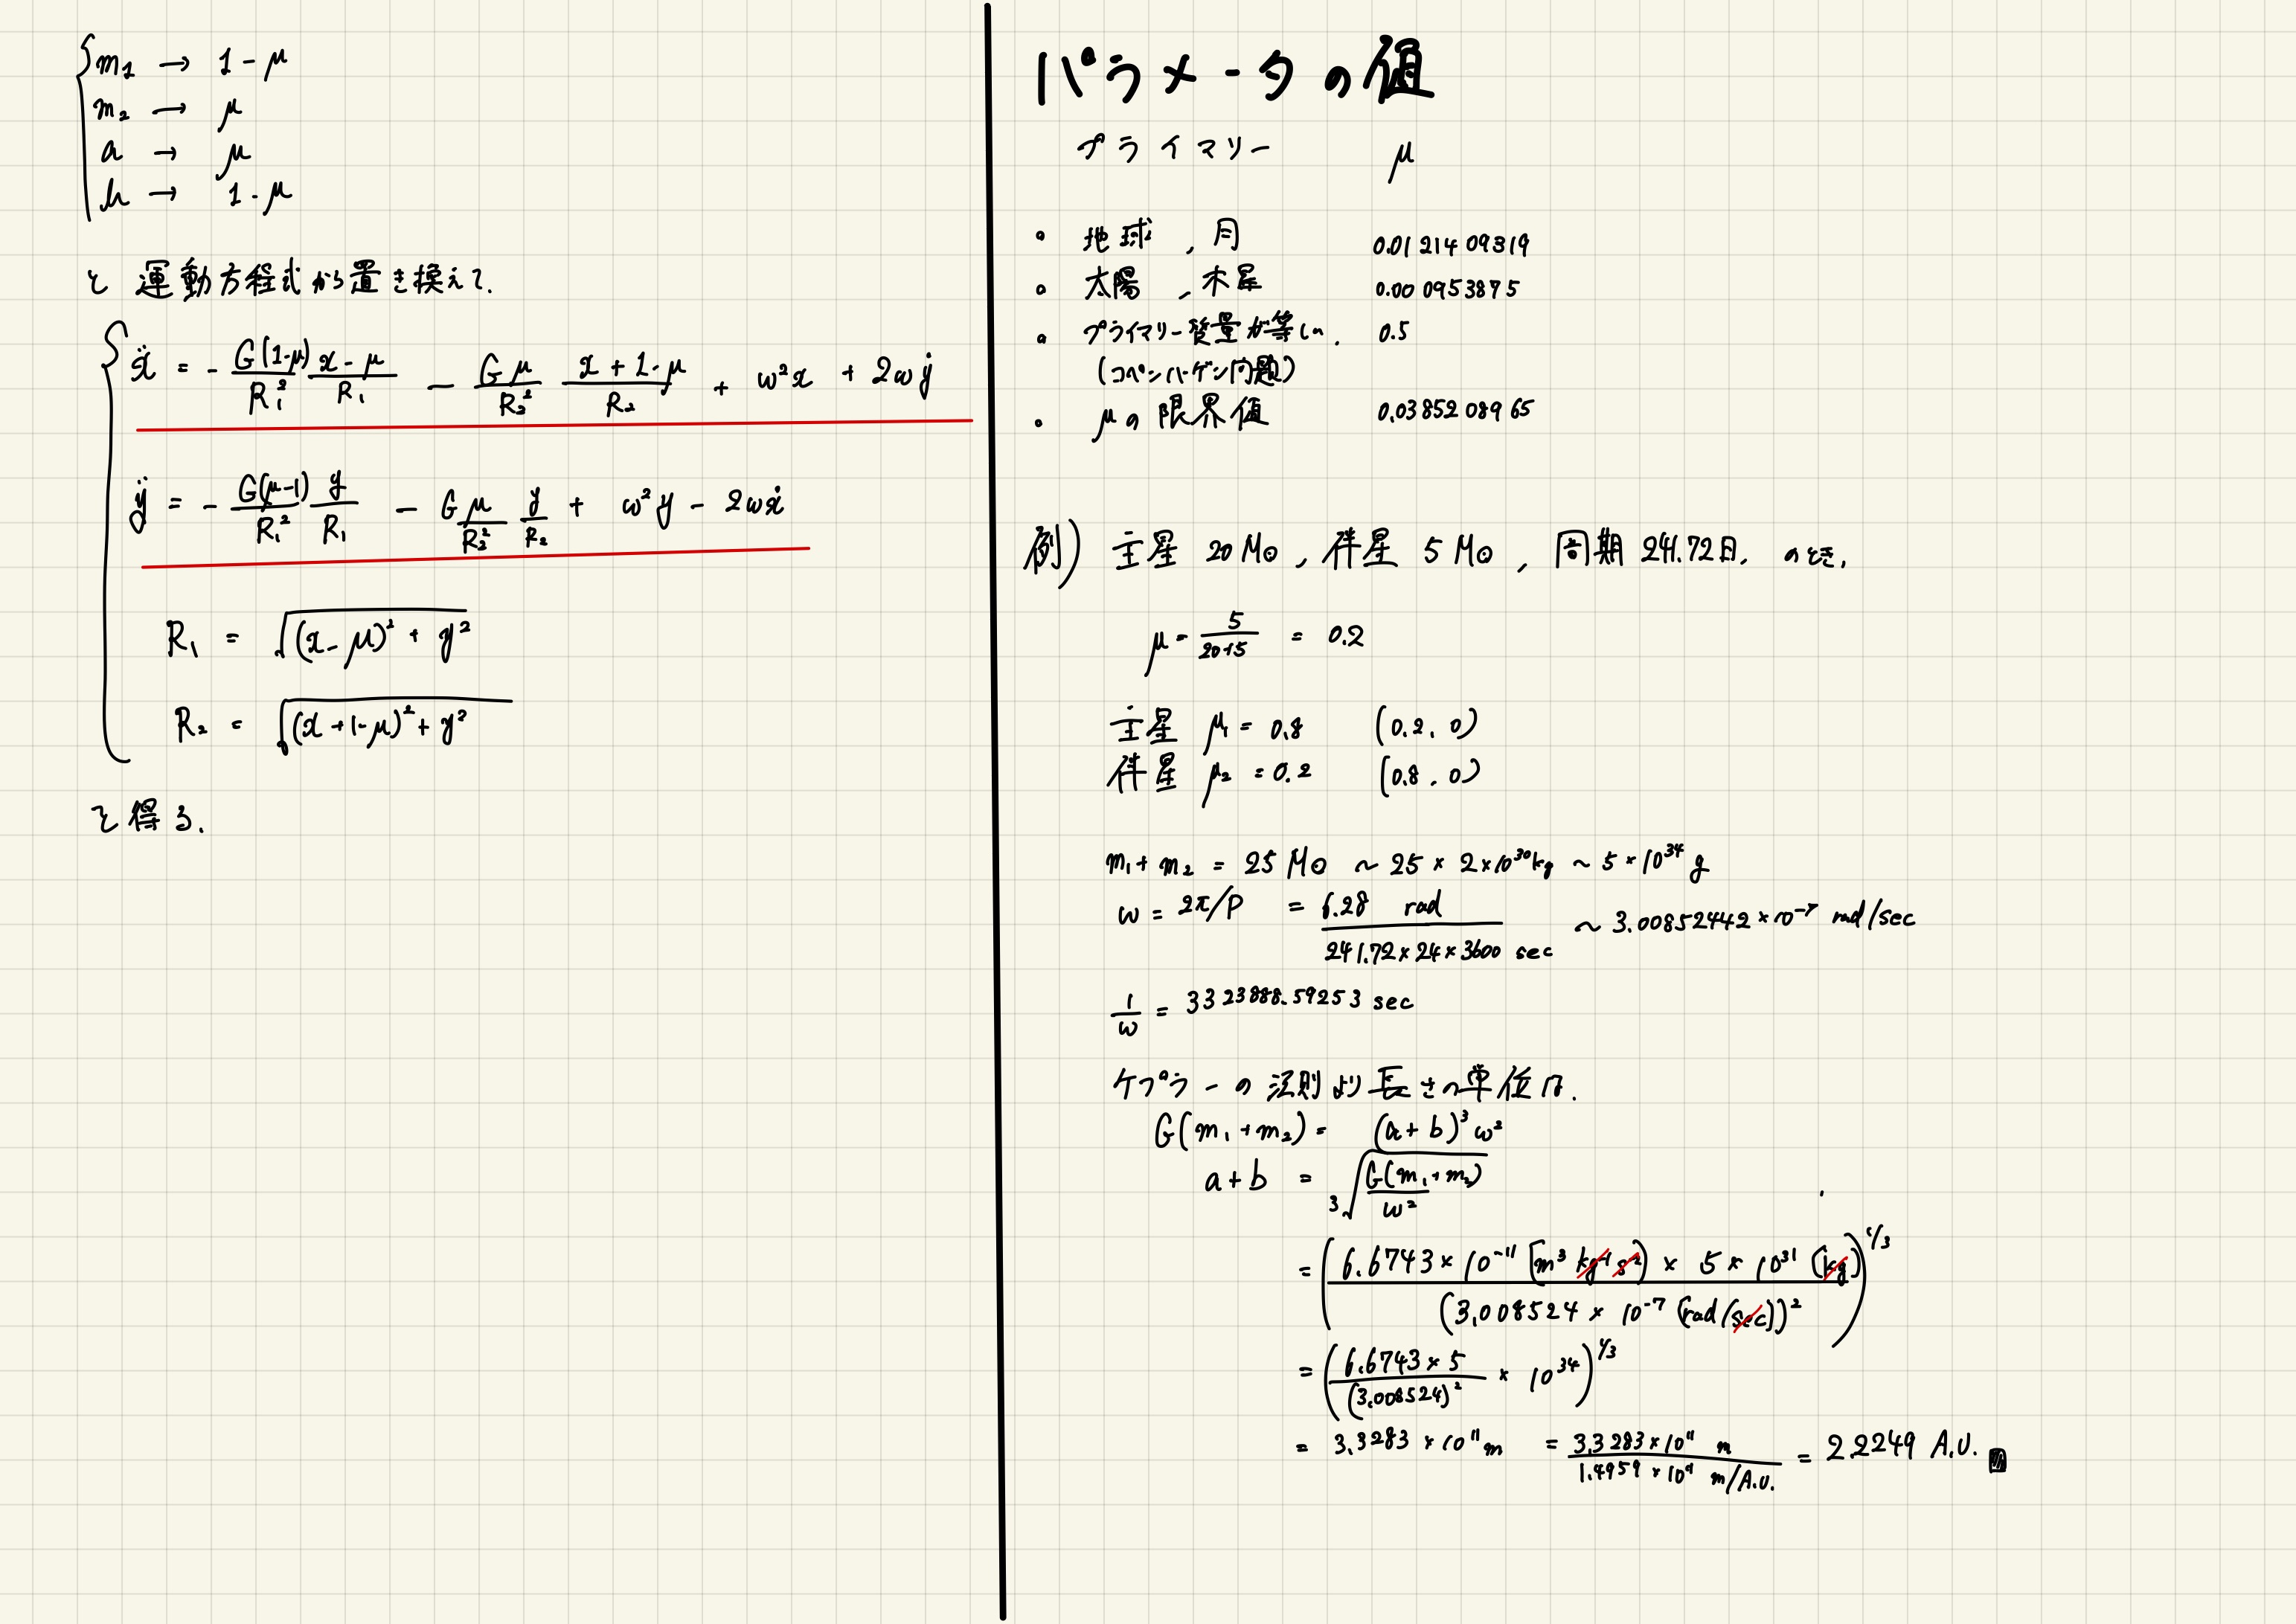 m₁ → 1-μ
m₂ → μ
a → μ
b → 1-μ
と 運動方程式から置き換えて.
ẍ = - G(1-μ)/R₁² (x-μ)/R₁ - Gμ/R₂² (x+1-μ)/R₂ + ω²x + 2ωẏ
ÿ = - G(μ-1)/R₁² y/R₁ - Gμ/R₂² y/R₂ + ω²y - 2ωẋ
R₁ = √((x-μ)² + y²)
R₂ = √((x+1-μ)² + y²)
と得る.
パラメータの値
プライマリー μ
• 地球 , 月 0.0121409319
• 太陽 , 木星 0.000953875
• プライマリー質量が等しい. 0.5
(コペンハーゲン問題)
• μの限界値 0.0385208965
例) 主星 20M⊙ , 伴星 5M⊙ , 周期 241.72日. のとき.
μ = 5/(20+5) = 0.2
主星 μ₁ = 0.8 (0.2, 0)
伴星 μ₂ = 0.2 (0.8, 0)
m₁+m₂ = 25M⊙ ~ 25 × 2×10³⁰kg ~ 5×10³⁴ g
ω = 2π/P = 6.28 rad / 241.72×24×3600 sec ~ 3.00852442×10⁻⁷ rad/sec
1/ω = 3323888.59253 sec
ケプラーの法則より長さの単位は.
G(m₁+m₂) = (a+b)³ω²
a+b = ³√(G(m₁+m₂)/ω²)
= (6.6743×10⁻¹¹ [m³ kg⁻¹ s⁻²] × 5×10³¹ [kg] / (3.008524×10⁻⁷ [rad/(sec)])²)^1/3
= (6.6743×5/(3.008524)² × 10³⁴)^1/3
= 3.3283×10¹¹ m = 3.3283×10¹¹ m / 1.4959×10¹¹ m/A.U. = 2.2249 A.U.